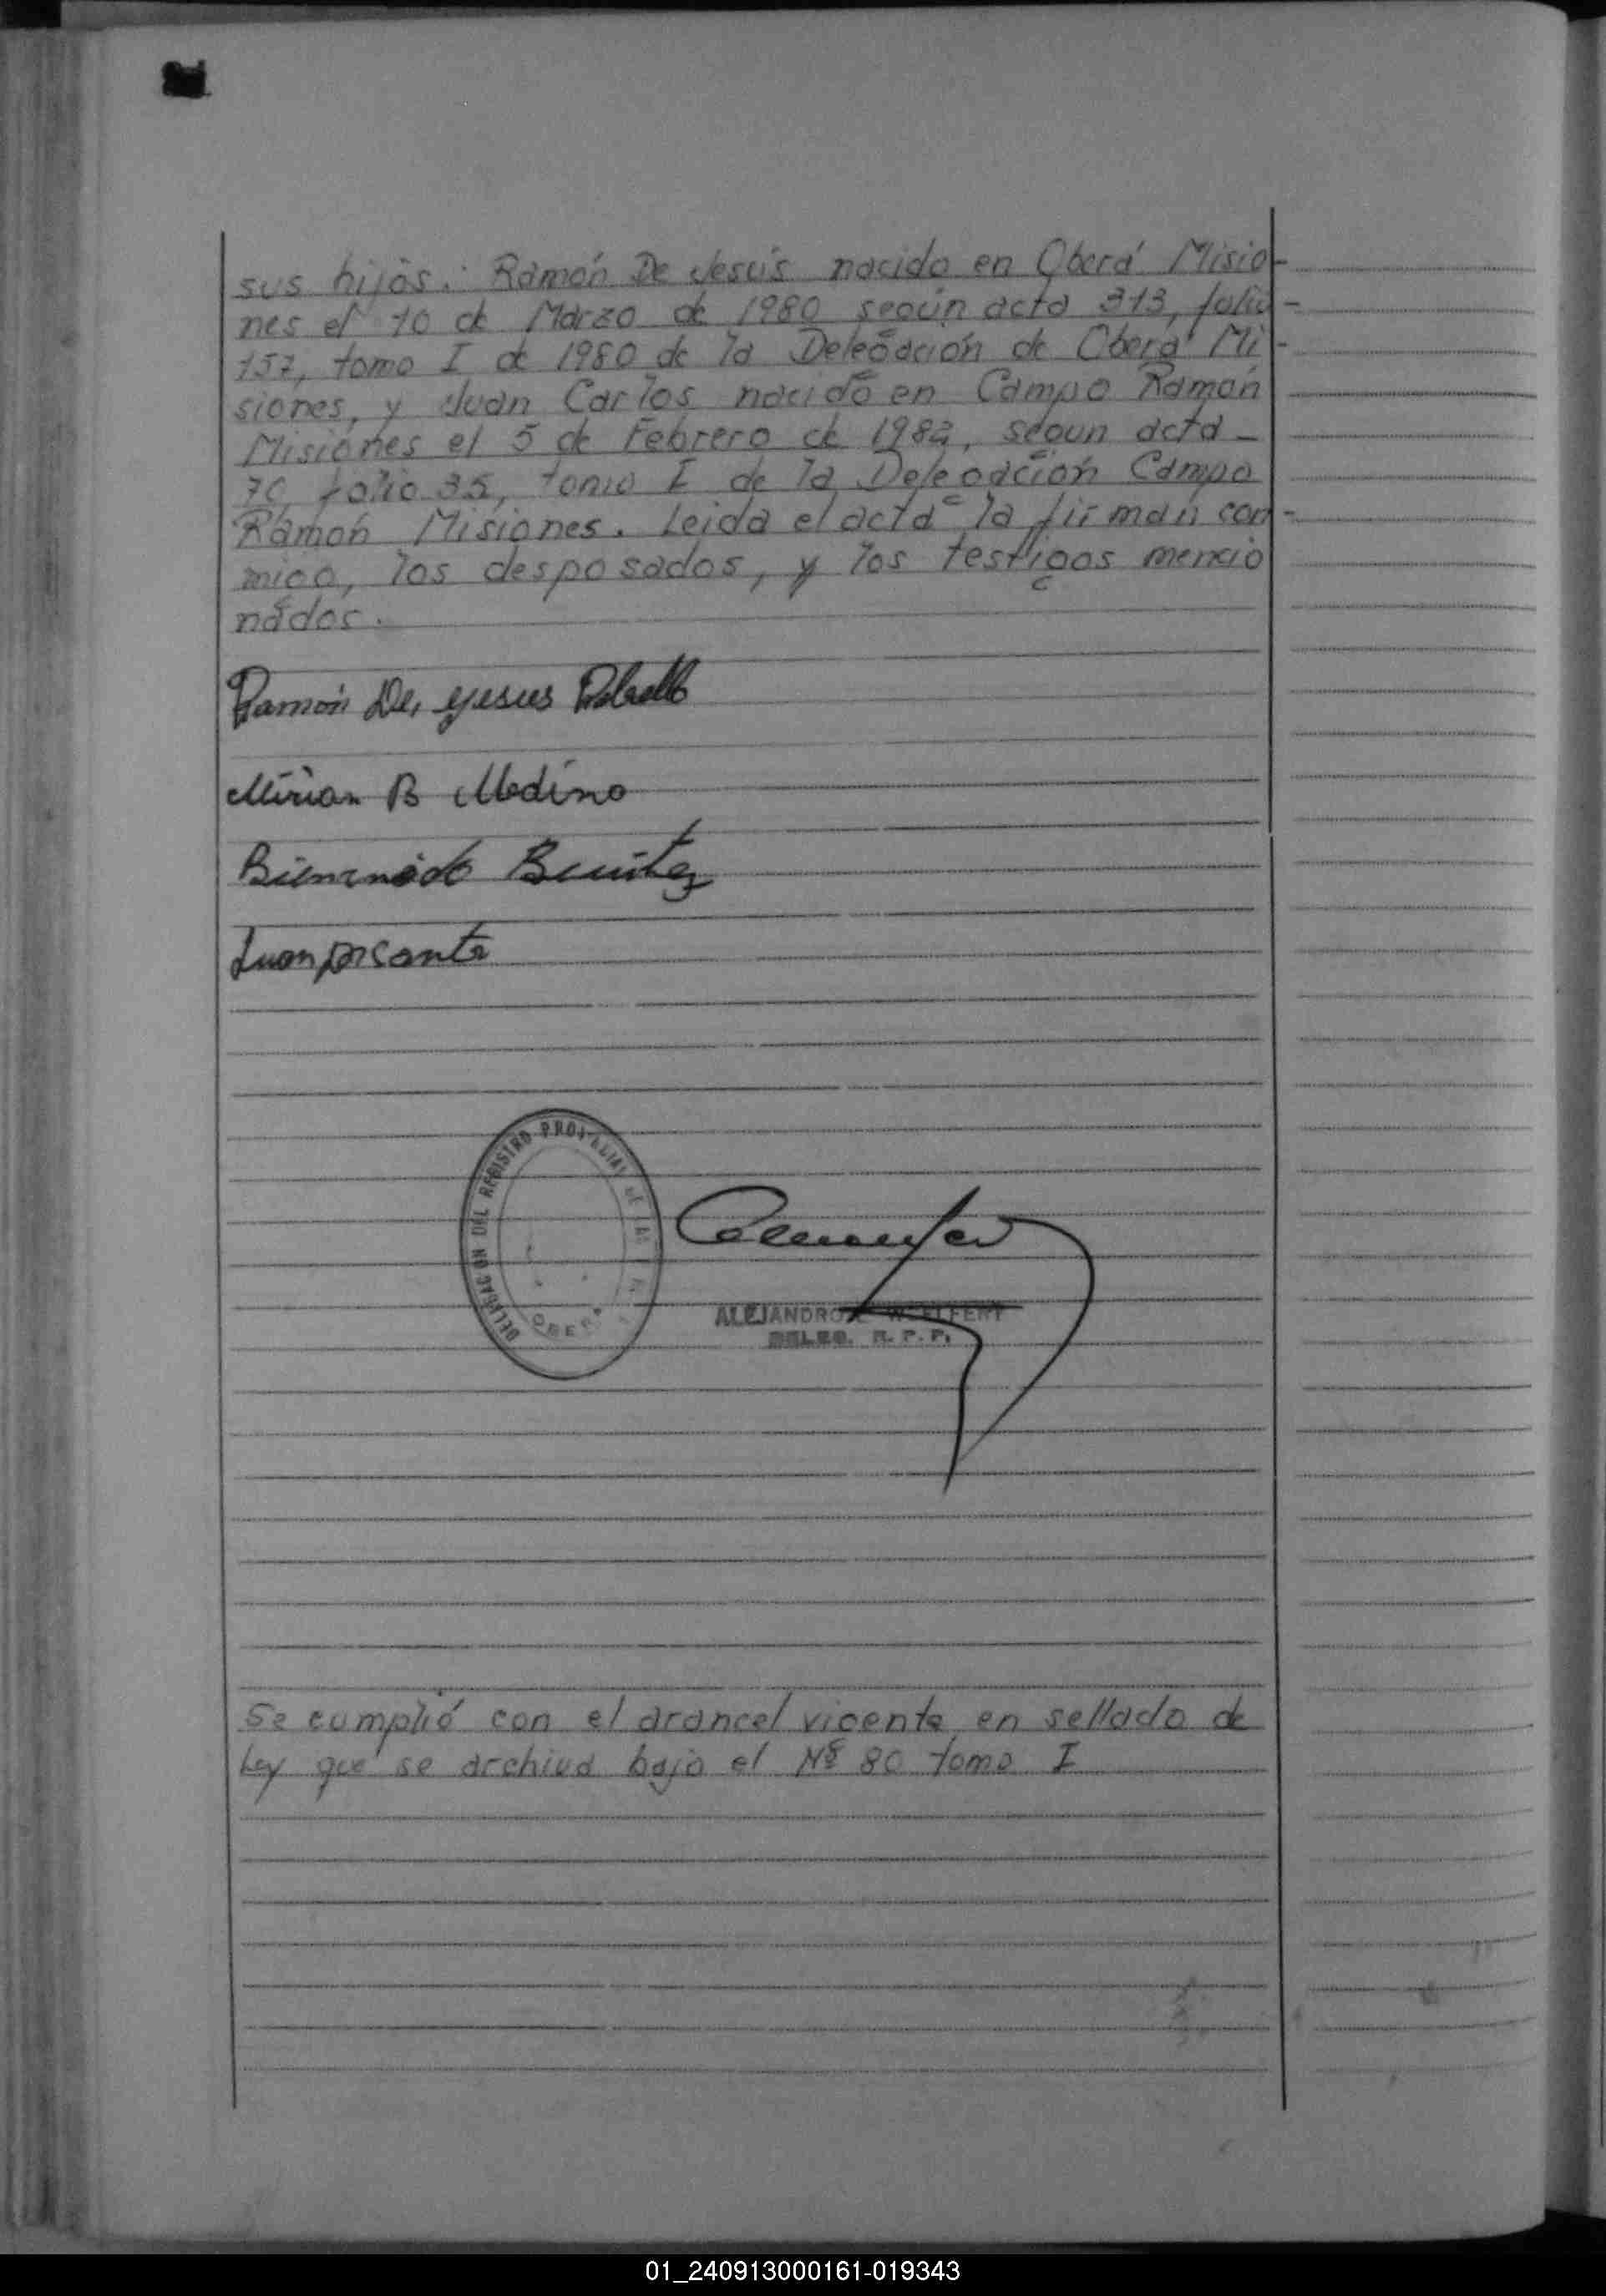 sus hijos: Ramón De Jesús nacido en Oberá Misio-
nes el 10 de Marzo de 1980 según acta 313, folio-
157, tomo I de 1980 de la Delegación de Oberá Mi-
siones, y Juan Carlos nacido en Campo Ramón
Misiones el 5 de Febrero de 1982, según acta-
70 folio 35, tomo I de la Delegación Campo
Ramón Misiones. Leida el acta la firman con-
migo, los desposados, y los testigos mencio
nados.
Ramón De, Jesus
Mirian B Medina
Bienvenido Benitez
Juan
DELEGACION DEL REGISTRO PROVINCIAL DE LAS
OBERA
ALEJANDRO
DELEG. R. P. P.
Se cumplió con el arancel vigente en sellado de
Ley que se archiva bajo el Nº 80 tomo I
01_240913000161-019343